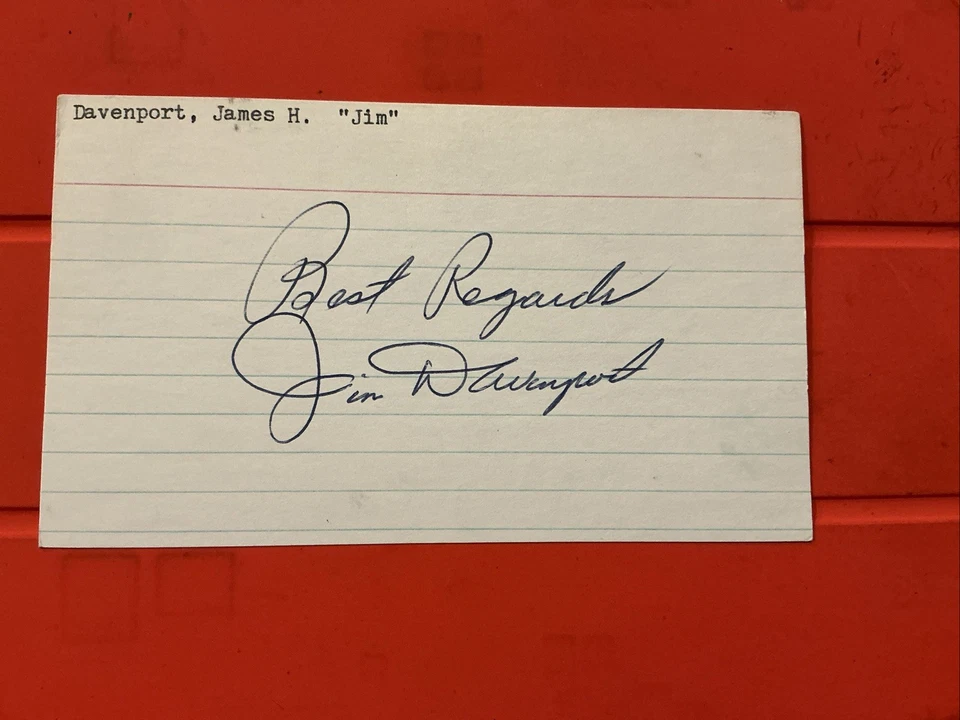 Davenport, James H. "Jim"
Best Regards
Jim Davenport